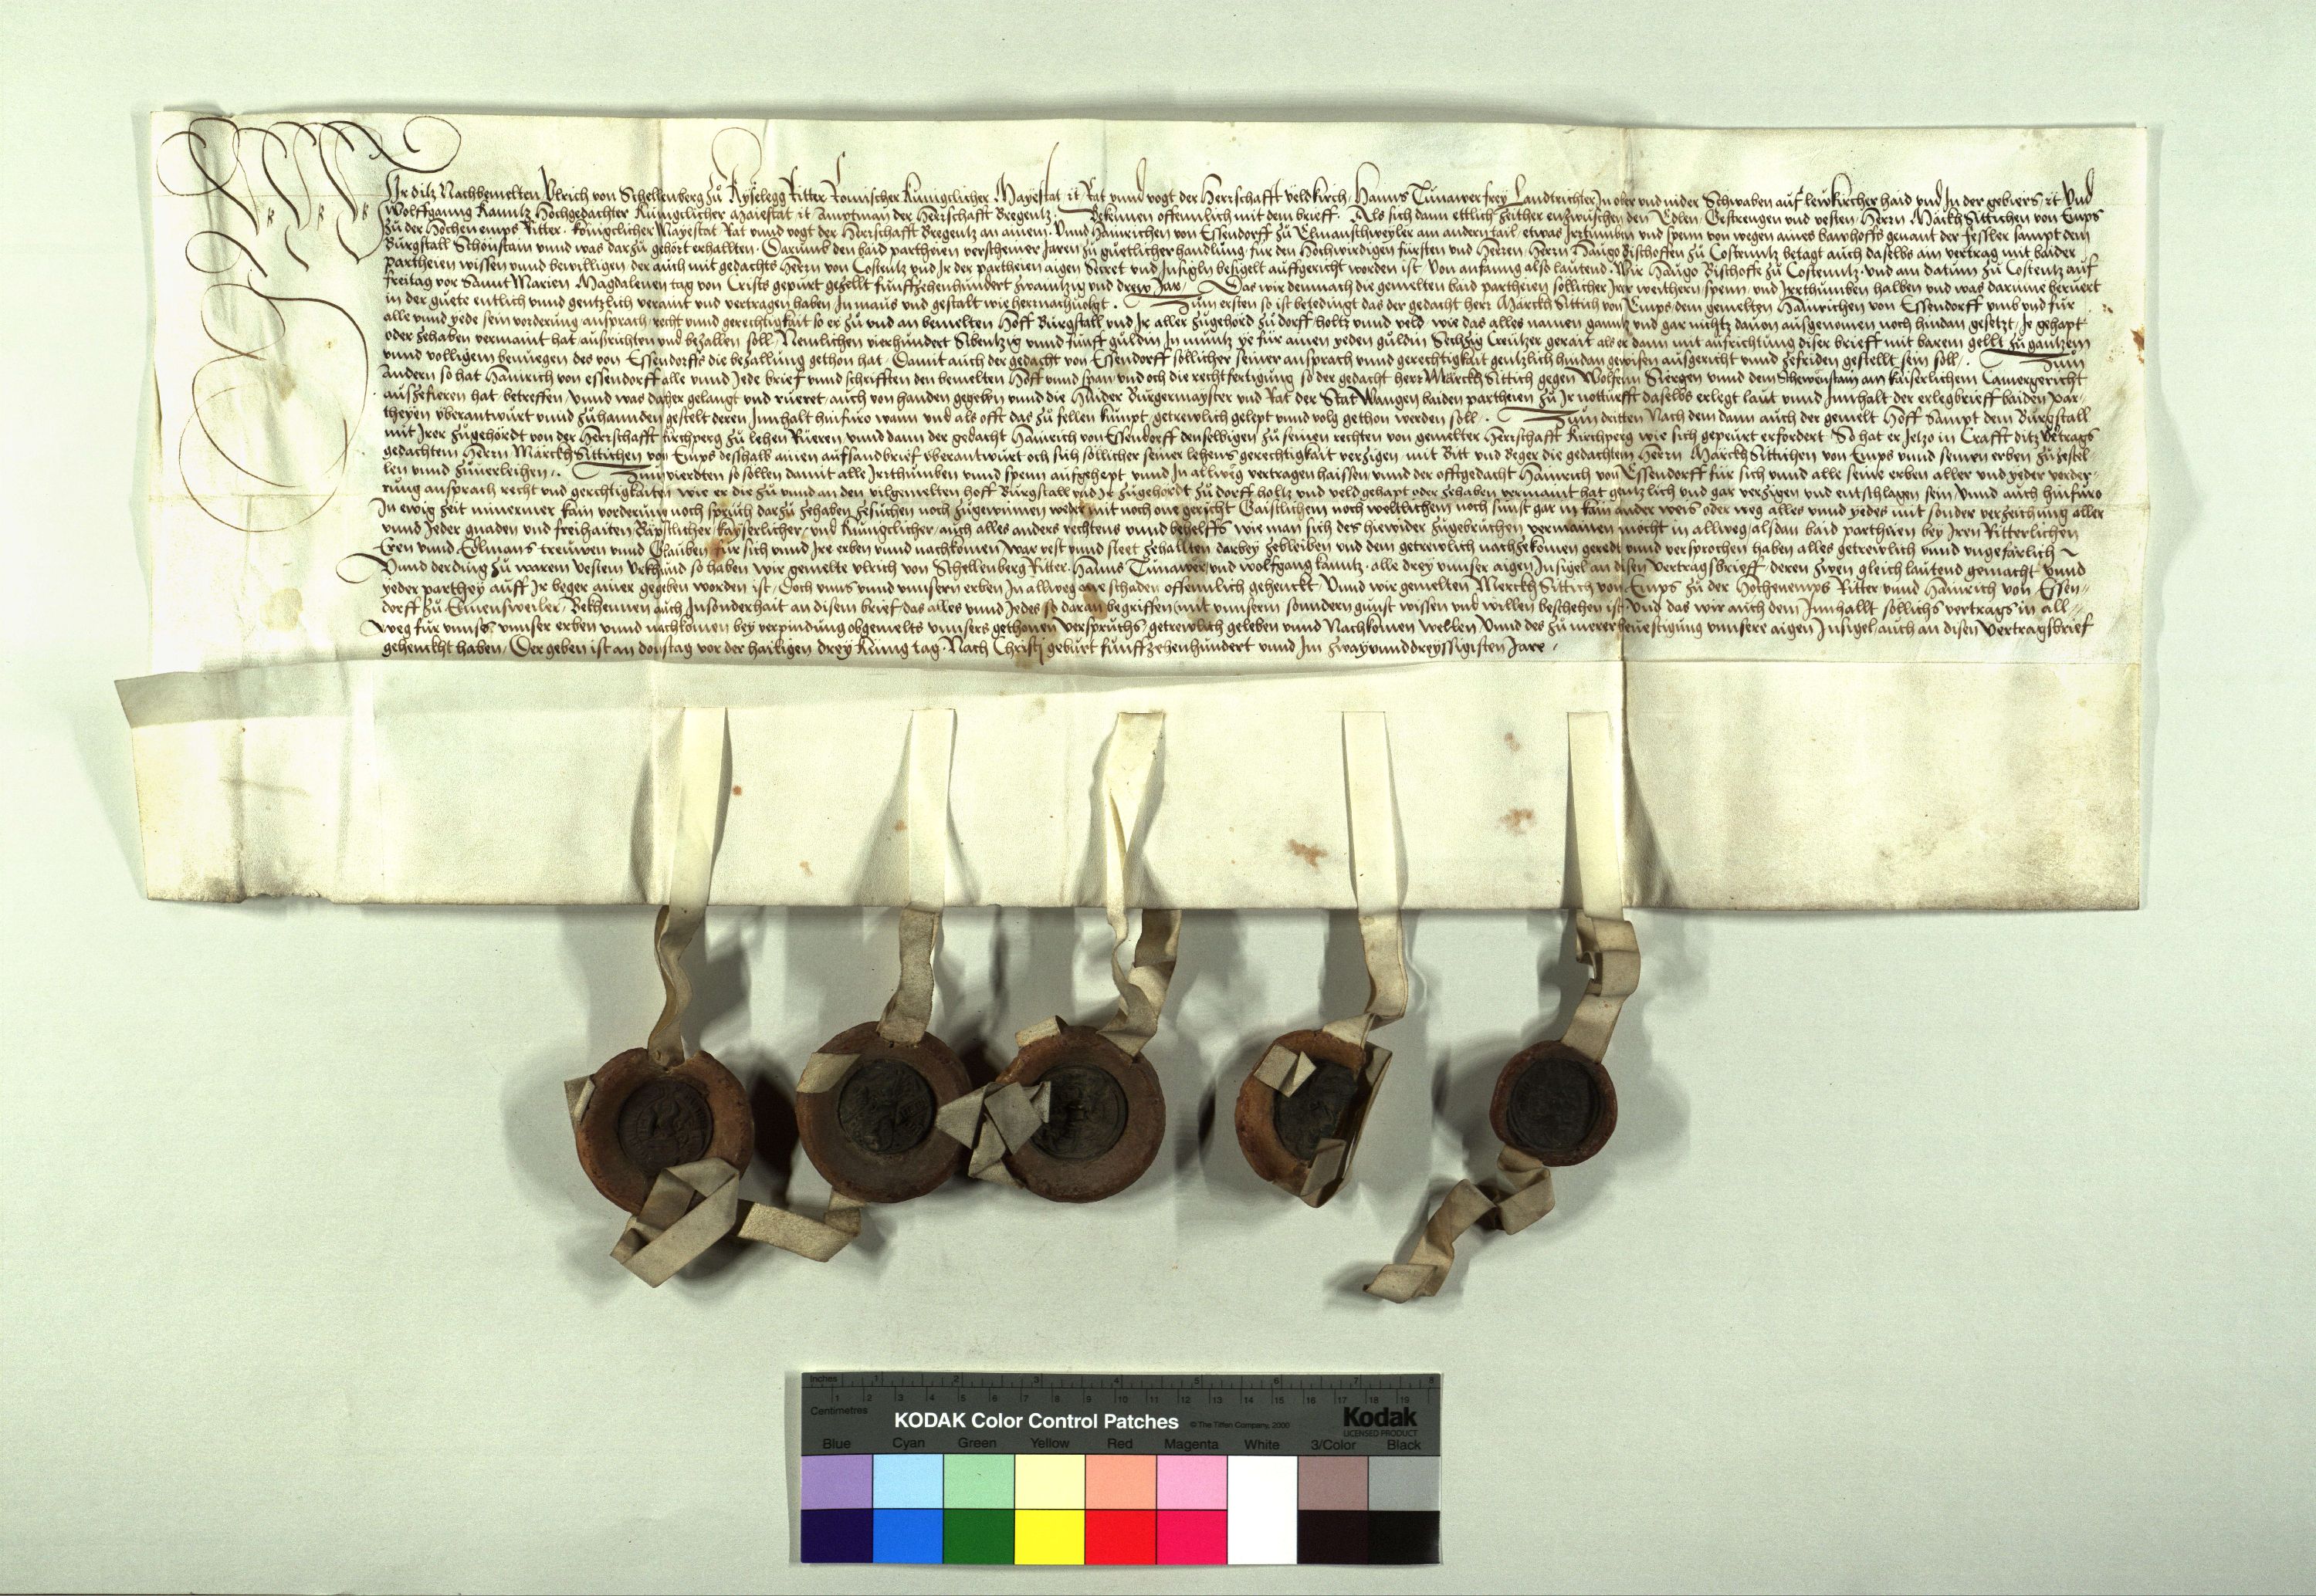 Wir diß Nachbemelten Ulrich von Schellenberg zů Kyselegg Ritter Romischer Kunigclicher Mayestat ꝛc Rat vnnd vogt der Herrschafft veldkirch, Hanns Tünawer frey Landtrichter In ober vnd nider Schwaben auf lewkircher haid vnd In der gebiers ꝛc Vnd
Wolffganng Kanntz Hochgedachter Kunigclicher Maiestat ꝛc Amptman der Herrschafft Bregentz. Bekennen offennlich mit dem brieff. Als sich dann ettlich zeither entzwüschen den Edlen Gestrengen vnd vesten Herrn Märckh Sittichen von Emps
zů der Hochen emps Ritter. Königclicher Mayestat Rat vnnd vogt der Herrschafft Bregentz an ainem. Vnnd Hainrichen von Essendorff zů Elmanschweyler am andern tail etwas Irrtumben vnd spenn von wegen aines bawhoffs genant der Fessler sampt dem
Bürgstall Schönstain vnnd was darzů gehört erhallten. Darumb den baid partheyen verschiner Jaren zů guetlicher handlung für den Hochwirdigen fürsten vnd Herrn Herrn Haugo Bischoffen zů Costenntz betagt auch daselbs am vertrag mit baider
partheien wissen vnnd bewilligen der auch mit gedachts Herrn von Costentz vnd Jr der partheien aigen Secret vnd Insigln besigelt auffgericht worden ist Von anfanng also lautend. Wir Haugo Bischoffe zů Costenntz. vnd am datum zů Costentz auf
freitag vor Sannt Marien Magdalenen tag von Crists gepurt gezellt funffzehenhundert zwaintzig vnd drew Jar. Das wir demnach die gemelten baid partheien sollicher Jrer weithern spenn vnd Irrthumben halben vnd was darume berüert
in der guete entlich vnnd gentzlich veraint vnd vertragen haben In maus vnd gestalt wie hernachuolgt. Zum ersten so ist betedingt das der gedacht herr Märckh Sittich von Emps dem gemelten Hainrichen von Essendorff vmb vnd für
alle vnnd yede sein vorderung ansprach recht vnnd gerechtigkait so er zů vnd an bemelten Hoff Bürgstall vnd Jr aller zugehörd zů dorff holtz vnnd veld wie das alles namen gannt vnd gar nichtz dauon ausgenomen noch hindan gesetzt Je gehapt
oder zehaben vermaint hat ausrichten vnd bezallen soll Nemlichen vierhundert Sibentzig vnnd funff guldin In müntz ye für ainen yeden guldin Sechzig Creützer gerait als er dann mit aufrichtung diser brieff mit barem gellt zů gantzem
vnnd volligem benüegen des von Essendorffs die bezallung gethon hat. Damit auch der gedacht von Essendorff sollicher seiner ansprach vnnd gerechtigkait gentzlich hindan gewisen ausgericht vnnd zefriden gestellt sein soll. Zum
Andern so hat Hainrich von essendorff alle vnnd Jede brief vnnd schrifften den bemelten Hoff vnnd span vnd och die rechtfertigung so der gedacht herr Märckh Sittich gegen Wolfenn Siergen vnnd dem am kaiserlichem Camergericht
ausgefueren hat betreffen vnnd was daher gelangt vnd rüeret auch von handen gegeben vnnd die Hinder Bürgermayster vnd Rat der Stat Wangen baiden partheien zů Jr notturfft daselbs erlegt laut vnnd Innhalt der erlegbrieff baiden par-
theyen vberantwurt vnnd zuhannden gestelt deren Innhalt hinfüro wann vnd als offt das zů fellen kumpt getrewlich gelept vnd volg gethon werden soll. Zum dritten Nach dem dann auch der gemelt Hoff Sampt dem Bürgstall
mit Jrer zugehördt von der Herrschafft kirchperg zů lehen Rüeren vnnd dann der gedacht Hainrich von Essendorff denselbigen zů seinen rechten von gemelter Herrschafft Kirchperg wie sich gepeürt erfordert So hat er Jetzo in Crafft ditz Vertrags
gedachtem Herrn Märckh Sittichen von Emps desshalb ainen aufsandbrief vberantwürt och sich söllicher seiner lehens gerechtigkait verzigen mit Bitt vnd Beger die gedachtem Herrn Märckh Sittichen von Emps vnnd seinen erben zuzestel-
len vnnd zůuerleichen. Zum vierdten so sollen damit alle Irrthumben vnnd spenn aufgehept vnnd In allweg vertragen haissen vnnd der offtgedacht Hainrich von Essendorff für sich vnnd alle seine erben aller vnd yeder vorder-
rung ansprach recht vnd gerechtigkaiten wie er die zů vnnd an den vilgemelten hoff Bürgstall vnd Jr zugehordt zů dorff holtz vnd veld gehapt oder zehaben vermaint hat gentzlich vnd gar verzigen vnd entschlagen sein vnnd auch hinfüro
In ewig zeit nimermer kain vorderung noch spruch darzů zehaben zesüchen noch zugewinnen weder mit noch one gericht Gaistlichem noch weltlichem noch sunst gar in kain ander weis oder weg alles vnnd yedes mit sonder verzeichung aller
vnnd Jeder gnaden vnd freihaiten Bäpstlicher kayserlicher vnd Kunigclicher auch alles anders rechtens vnnd behelffs wie man sich des hiewider zugebruchen vermainen mocht in allweg als dan baid partheien bey Jren Ritterlichen
Eren vnnd Edlmans treuwen vnnd Glauben für sich vnnd Jre erben vnnd nachkomen war vest vnnd steet zehallten darbey zebleiben vnd dem getrewlich nachzekomen geredt vnnd versprochen haben alles getrewlich vnnd vngefarlich
Vnnd der ding zů warem vestem vrkhund so haben wir gemelte vlrich von Schellenberg Ritter. Hanns Tünawer vnd wolfgang kanntz. alle drey vnnser aigen Insigel an disen vertragsbrieff deren zwen gleich lautend gemacht vnnd
yeder parthey auff Jr beger ainer gegeben worden ist. Doch vnns vnnd vnnsern erben In allweg one schaden offennlich gehenckt. Vnnd wir gemelten Merckh Sittich von Emps zů der Hochenemps Ritter vnnd Hainrich von Essen-
dorff zů Bekhennen auch Insonderhait an disem brief das alles vnnd Jedes so daran begriffen mit vnnserm sondern gunst wissen vnd willen beschehen ist Vnd das wir auch dem Innhallt sollichs vertrags in all-
weg für vnns vnnser erben vnnd nachkomen bey verpindung obgemelts vnnsers gethonen verspruchs getrewlich geleben vnnd Nachkomen wellen Vnnd des zů merer beuestigung vnnsere aigen Insigel auch an disen Vertragsbrief
gehenckht haben. Der geben ist an donstag vor der hailigen drey Kunig tag. Nach Christj geburt funffzehenhundert vnnd Im zwayvnnddreyssigisten Jare.
Inches 1 2 3 4 5 6 7 8
Centimetres 1 2 3 4 5 6 7 8 9 10 11 12 13 14 15 16 17 18 19
KODAK Color Control Patches © The Tiffen Company, 2000 Kodak
LICENSED PRODUCT
Blue Cyan Green Yellow Red Magenta White 3/Color Black